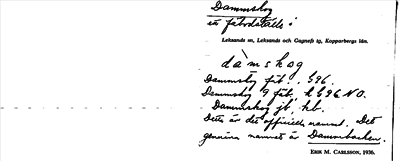 Dammskog
en fäbodställe i
Leksands sn, Leksands och Gagnefs tg, Kopparbergs län.
dàmskog
Dammskog fäb. , §96.
Dammskog 9 fäb. k §96 NO.
Dammskog jb. kb.
Detta är det officiella namnet. Det
genuina namnet är Dammbacken.
ERIK M. CARLSSON, 1936.